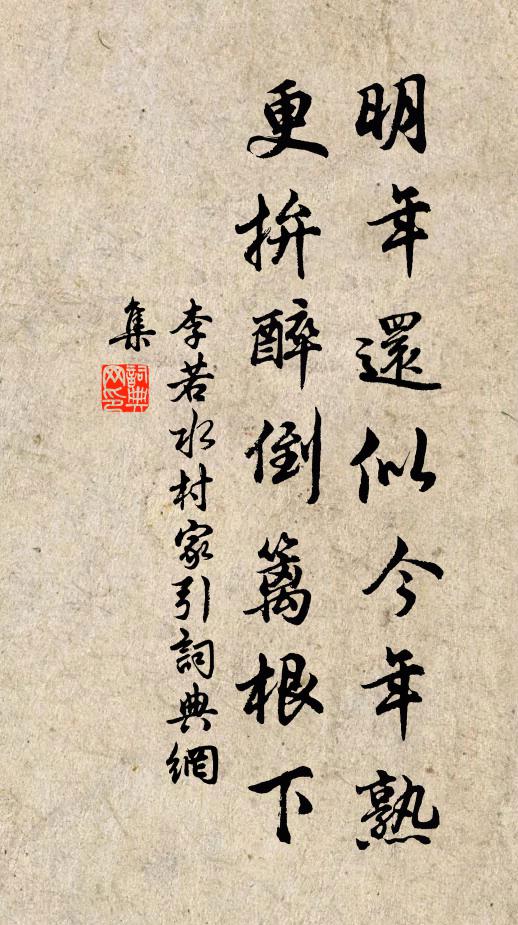 明年還似今年熟
更拚醉倒籬根下
李若水村家引詞典網
集
詞典網印